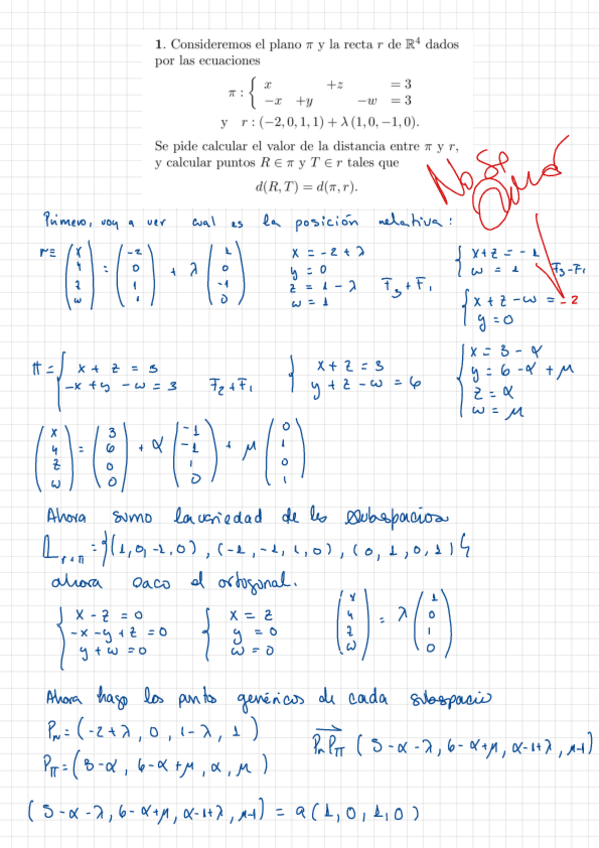 1. Consideremos el plano π y la recta r de ℝ⁴ dados
por las ecuaciones
π : { x +z = 3
-x +y -w = 3
y r : (-2, 0, 1, 1) + λ (1, 0, -1, 0).
Se pide calcular el valor de la distancia entre π y r,
y calcular puntos R ∈ π y T ∈ r tales que
d(R, T) = d(π, r).
No se
Primero, voy a ver cual es la posición relativa:
r ≡ (x y z w) = (-2 0 1 1) + λ (1 0 -1 0)
x = -2 + λ
y = 0
z = 1 - λ
w = 1
F₃ + F₁
{ x + z = -1
w = 1
F₃ - F₁
{ x + z - w = -2
y = 0
π = { x + z = 3
-x + y - w = 3
F₂ + F₁
{ x + z = 3
y + z - w = 6
{ x = 3 - α
y = 6 - α + μ
z = α
w = μ
(x y z w) = (3 6 0 0) + α (-1 -1 1 0) + μ (0 1 0 1)
Ahora sumo la variedad de los subespacios
L r+π = {(1, 0, -1, 0), (-1, -1, 1, 0), (0, 1, 0, 1)}
ahora saco el ortogonal.
{ x - z = 0
-x - y + z = 0
y + w = 0
{ x = z
y = 0
w = 0
(x y z w) = λ (1 0 1 0)
Ahora hago los punto genéricos de cada subespacio
Pr = (-2 + λ, 0, 1 - λ, 1)
Pπ = (3 - α, 6 - α + μ, α, μ)
PrPπ (5 - α - λ, 6 - α + μ, α - 1 + λ, μ - 1)
(5 - α - λ, 6 - α + μ, α - 1 + λ, μ - 1) = a (1, 0, 1, 0)